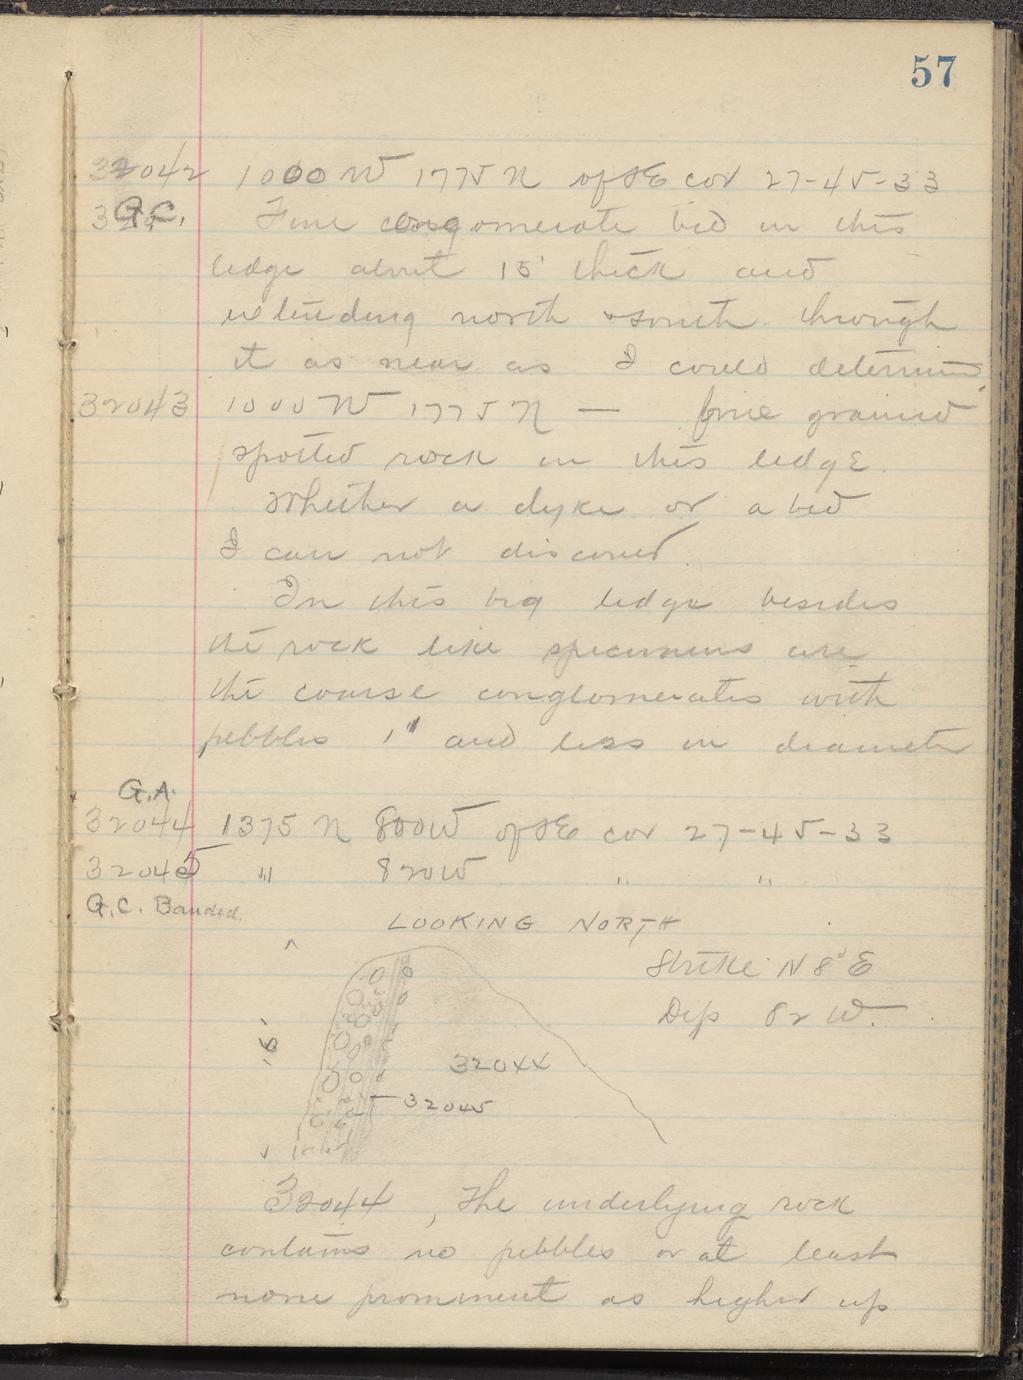 57
32042 1000 W 1775 N of SE cor 27-45-33
G.C. Fine conglomerate bed in this
ledge about 15' thick and
extending north & south through
it as near as I could determine
32043 1000 W 1775 N — fine grained
spotted rock in this ledge.
Whether a dyke or a bed
I can not discover.
In this big ledge besides
the rock like specimens are
the coarse conglomerates with
pebbles 1" and less in diameter
G.A.
32044 1375 N 800W of SE cor 27-45-33
32045 " 820W " "
G.C. Banded.
LOOKING NORTH
Strike N 8° E
Dip 82 W.
6'
32044
32045
32044, The underlying rock
contains no pebbles or at least
none prominent as higher up